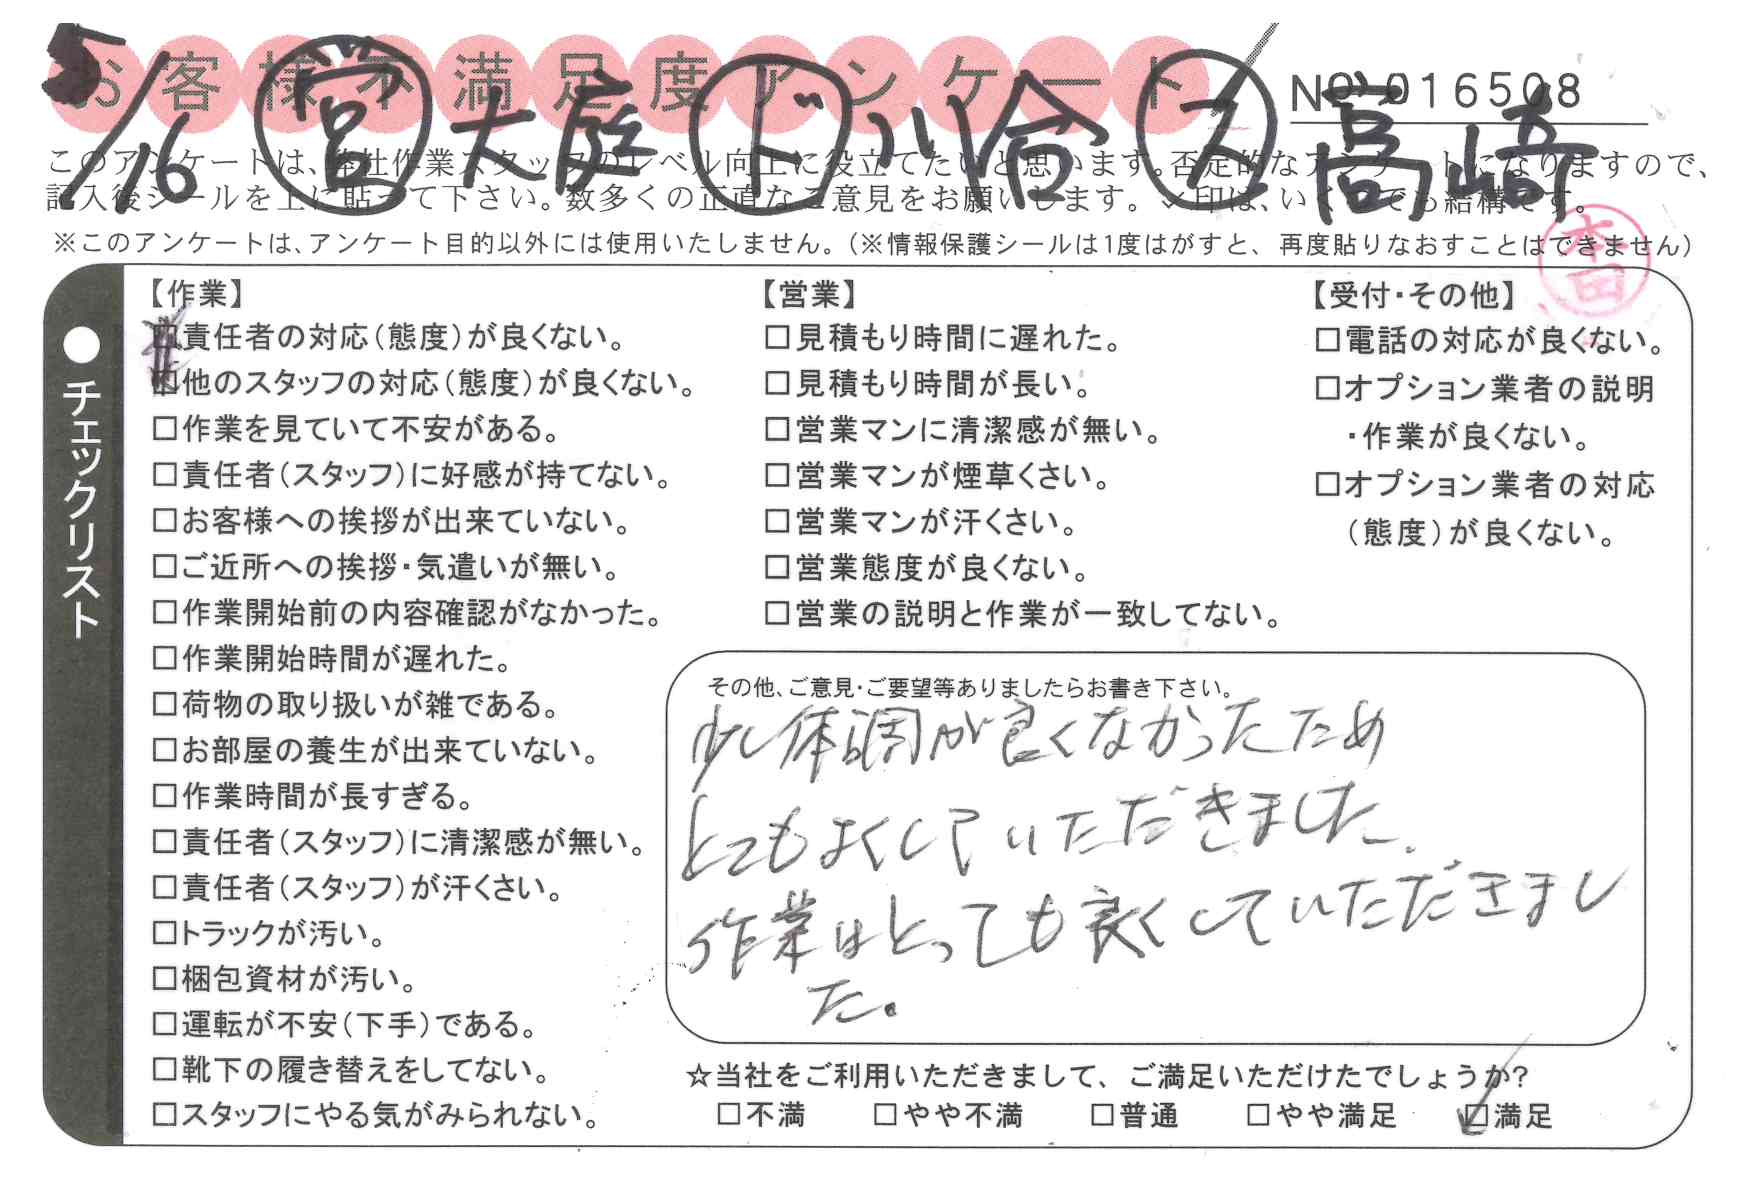 お客様不満足度アンケート
№ 016508
5/16 営 大庭 ド 川合 ス 高崎
このアンケートは、弊社作業スタッフのレベル向上に役立てたいと思います。否定的なアンケートになりますので、
記入後シールを上に貼って下さい。数多くの正直なご意見をお願いします。✓印は、いくつでも結構です。
※このアンケートは、アンケート目的以外には使用いたしません。(※情報保護シールは1度はがすと、再度貼りなおすことはできません)
本田
●チェックリスト
【作業】
□責任者の対応(態度)が良くない。
□他のスタッフの対応(態度)が良くない。
□作業を見ていて不安がある。
□責任者(スタッフ)に好感が持てない。
□お客様への挨拶が出来ていない。
□ご近所への挨拶・気遣いが無い。
□作業開始前の内容確認がなかった。
□作業開始時間が遅れた。
□荷物の取り扱いが雑である。
□お部屋の養生が出来ていない。
□作業時間が長すぎる。
□責任者(スタッフ)に清潔感が無い。
□責任者(スタッフ)が汗くさい。
□トラックが汚い。
□梱包資材が汚い。
□運転が不安(下手)である。
□靴下の履き替えをしてない。
□スタッフにやる気がみられない。
【営業】
□見積もり時間に遅れた。
□見積もり時間が長い。
□営業マンに清潔感が無い。
□営業マンが煙草くさい。
□営業マンが汗くさい。
□営業態度が良くない。
□営業の説明と作業が一致してない。
【受付・その他】
□電話の対応が良くない。
□オプション業者の説明
・作業が良くない。
□オプション業者の対応
(態度)が良くない。
その他、ご意見・ご要望等ありましたらお書き下さい。
少し体調が良くなかったため
とてもよくしていただきました。
作業はとっても良くしていただきまし
た。
☆当社をご利用いただきまして、ご満足いただけたでしょうか?
□不満 □やや不満 □普通 □やや満足 ☑満足